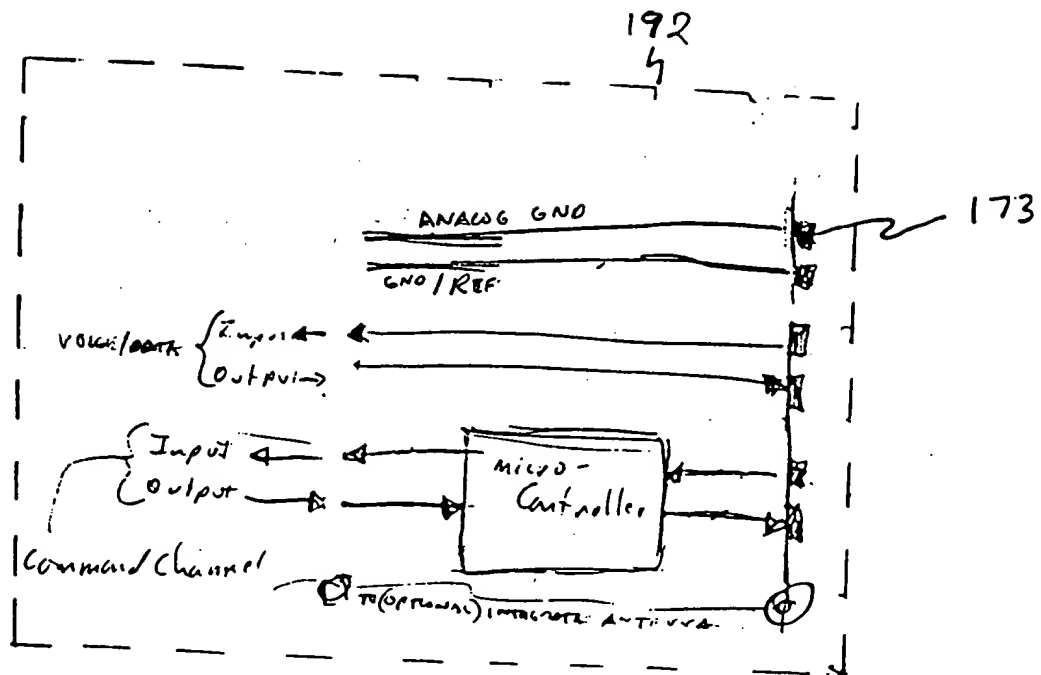 192
173
ANALOG GND
GND/REF
VOICE/DATA
Input
Output
Input
Output
Micro-
Controller
Command Channel
TO (OPTIONAL) INTEGRATE ANTENNA